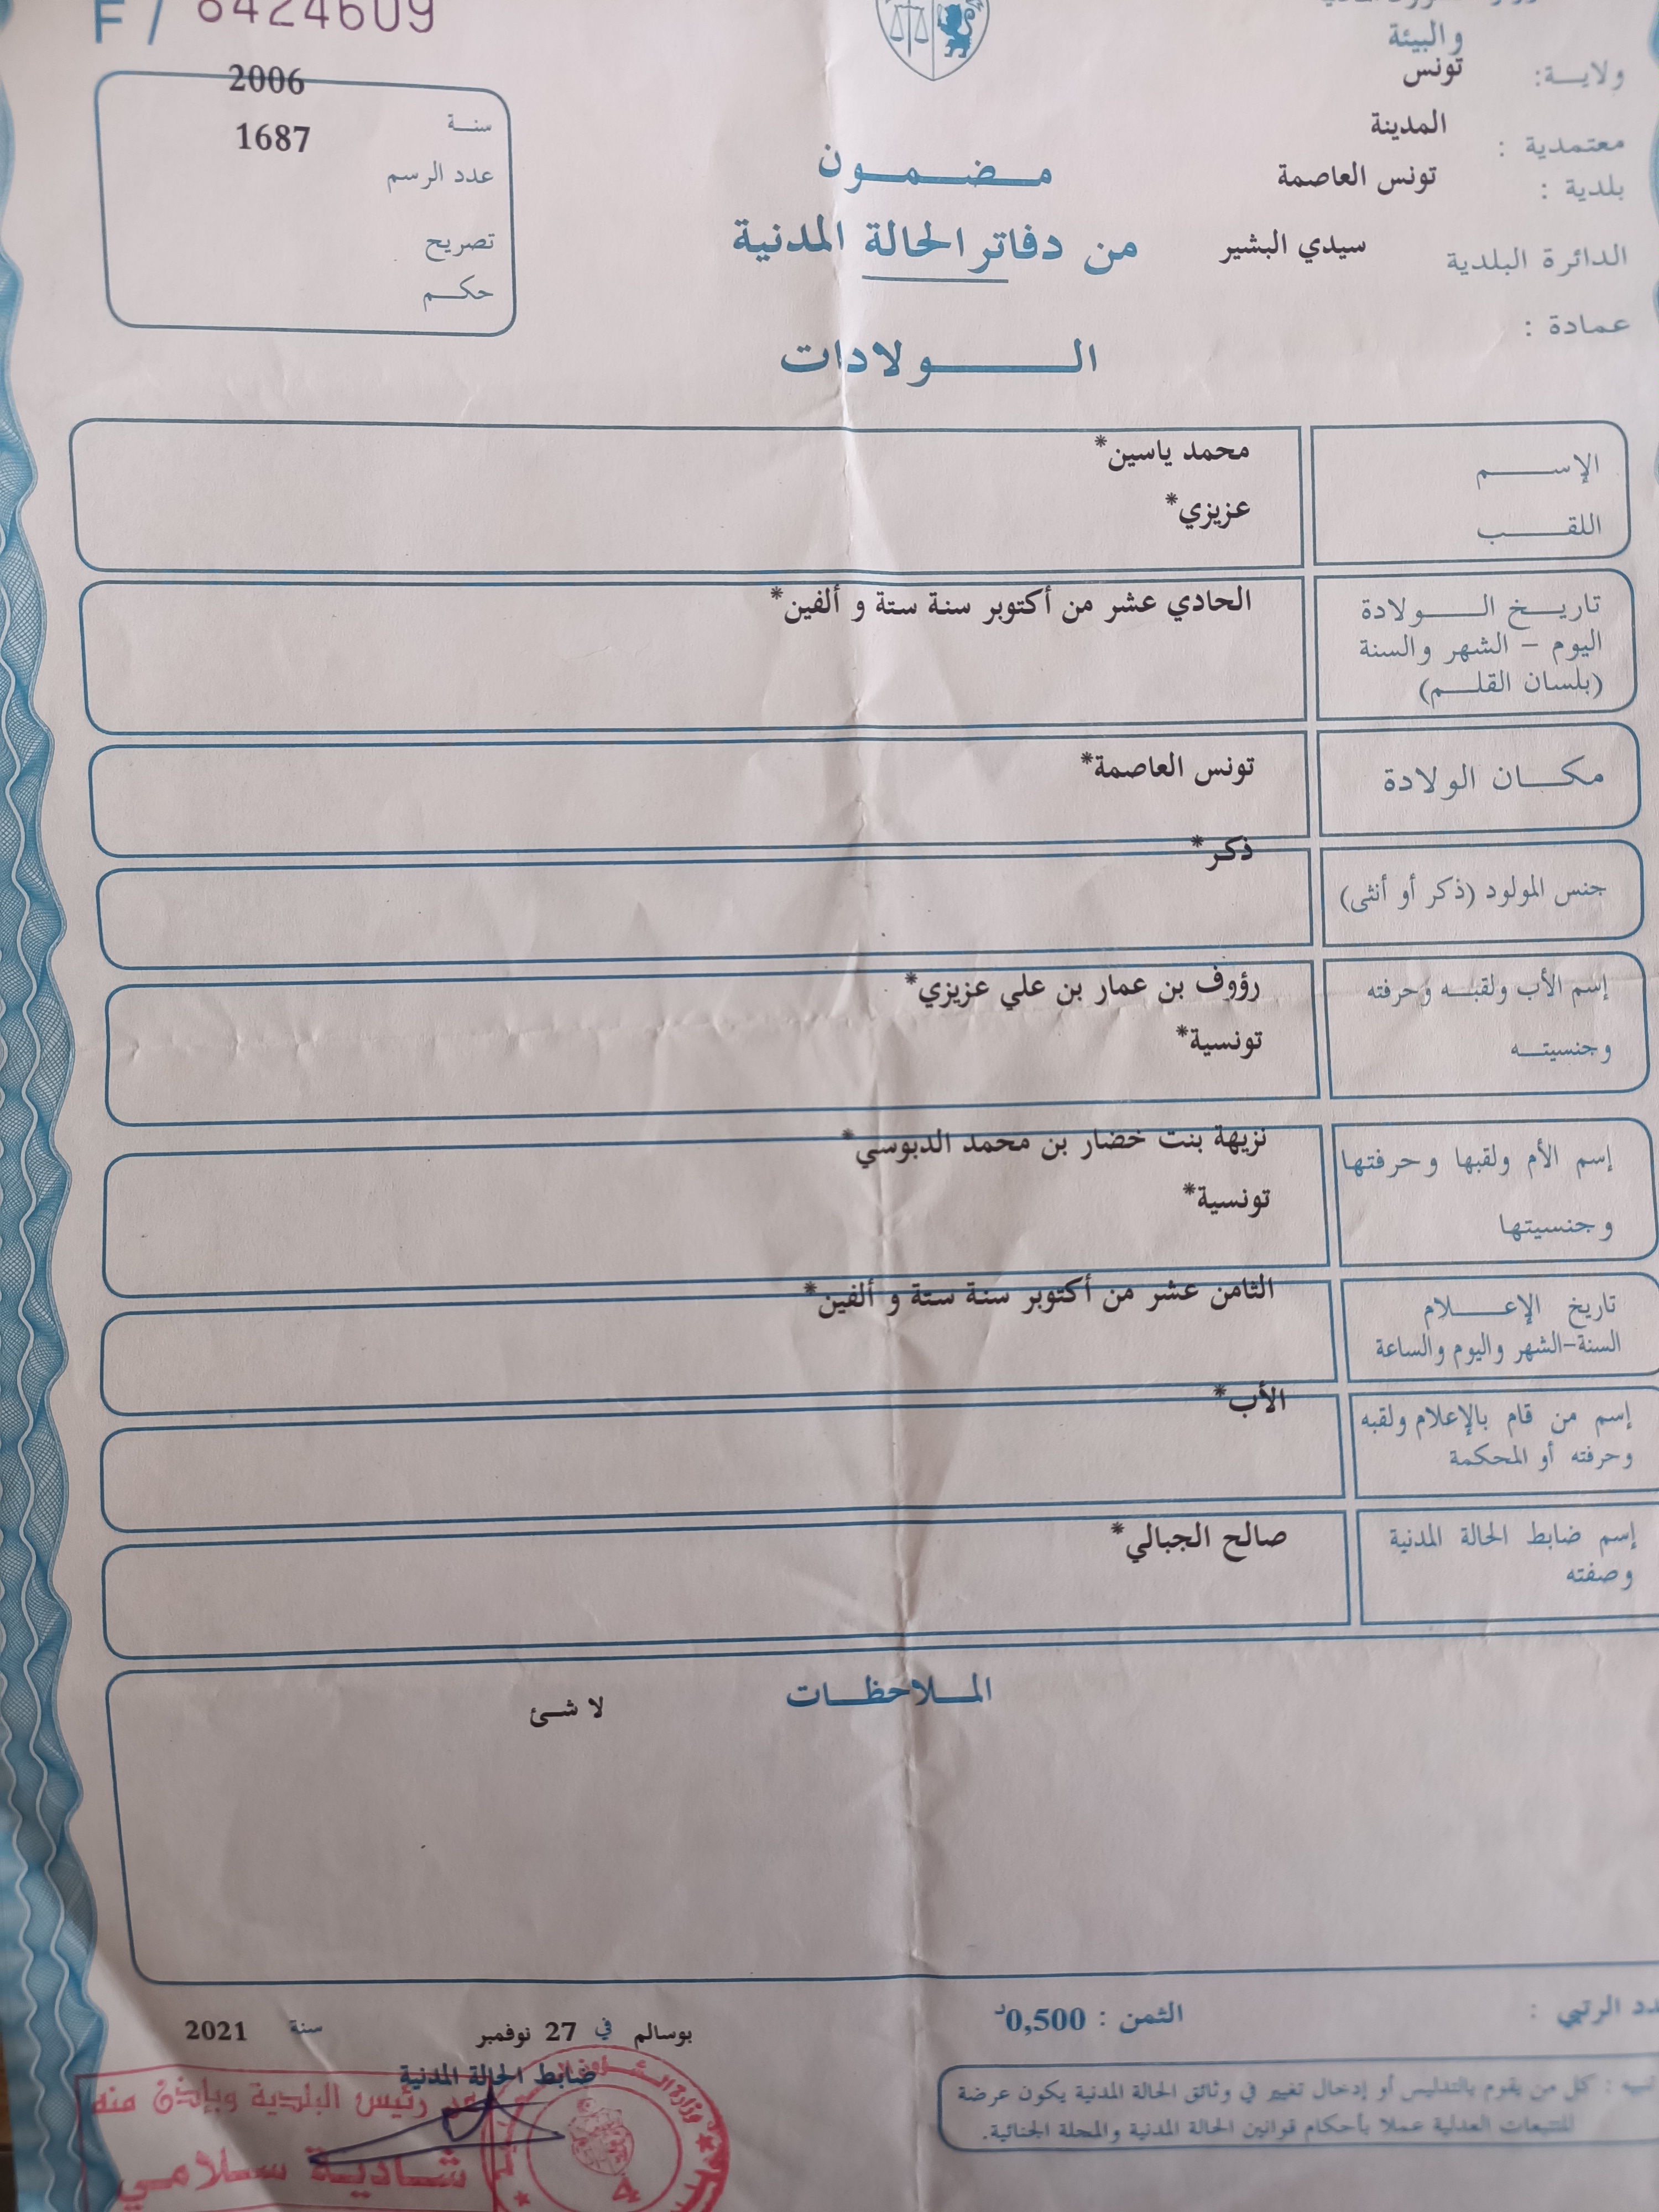 F / 8424609
والبيئة
ولايـــة: تونس
معتمدية : المدينة
بلدية : تونس العاصمة
الدائرة البلدية سيدي البشير
عمادة :
سنــة 2006
عدد الرسم 1687
تصريح
حكـــم
مـــضـــمـــون
من دفاتر الحالة المدنية
الـــــولادات
الإســـــم محمد ياسين*
اللقـــــب عزيزي*
تاريـــخ الـــــولادة الحادي عشر من أكتوبر سنة ستة و ألفين*
اليوم – الشهر والسنة
(بلسان القلـــم)
مكـــان الولادة تونس العاصمة*
جنس المولود (ذكر أو أنثى) ذكر*
إسم الأب ولقبــه وحرفته رؤوف بن عمار بن علي عزيزي*
وجنسيتــه تونسية*
إسم الأم ولقبها وحرفتها نزيهة بنت خضار بن محمد الدبوسي*
وجنسيتها تونسية*
تاريخ الإعـــــلام الثامن عشر من أكتوبر سنة ستة و ألفين*
السنة-الشهر واليوم والساعة
إسم من قام بالإعلام ولقبه الأب*
وحرفته أو المحكمة
إسم ضابط الحالة المدنية صالح الجبالي*
وصفته
المـــلاحظـــات
لا شئ
الرتبي :
الثمن : 0,500د
بوسالم في 27 نوفمبر سنة 2021
ضابط الحالة المدنية
رئيس البلدية وبإذن منه
شادية سلامي
4
: كل من يقوم بالتدليس أو إدخال تغيير في وثائق الحالة المدنية يكون عرضة
للتتبعات العدلية عملا بأحكام قوانين الحالة المدنية والمجلة الجنائية.